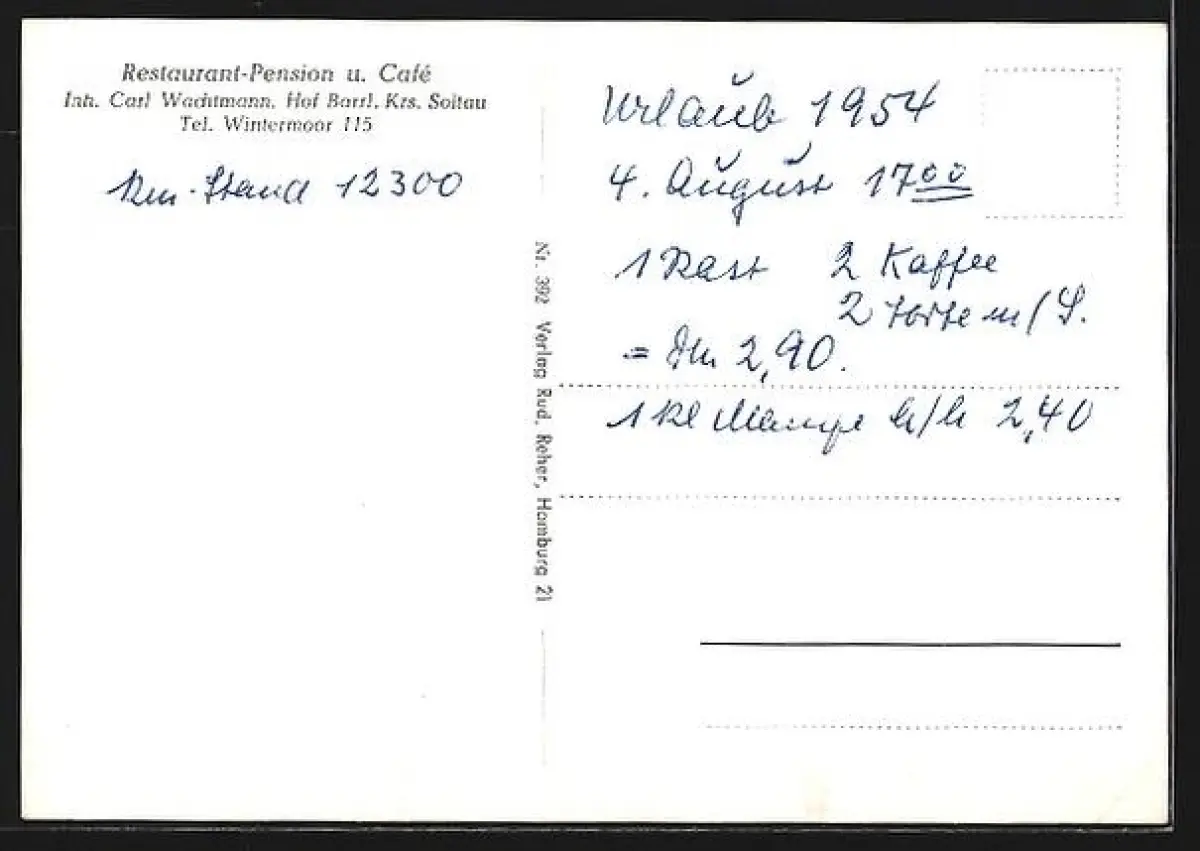 Restaurant-Pension u. Café
Inh. Carl Wachtmann, Hof Barrl, Krs. Soltau
Tel. Wintermoor 115
Km-Stand 12300
Nr. 392 Verlag Rud. Reher, Hamburg 21
Urlaub 1954
4. August 17 00
1 Rast 2 Kaffee
2 Torte m/S.
= DM 2,90.
1 Kl Mampe h/h 2,40